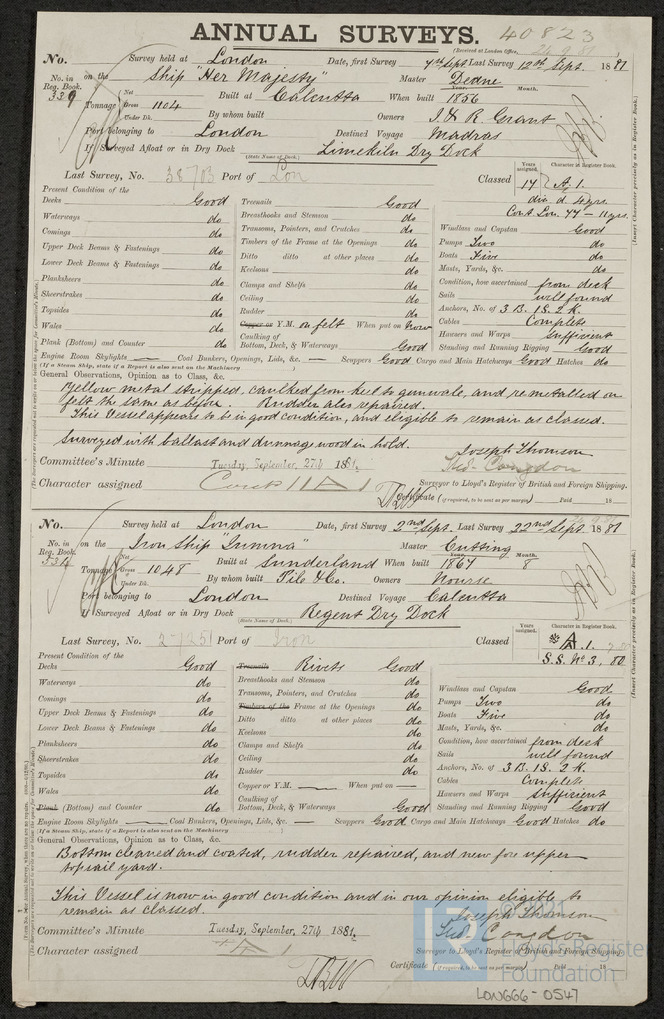 ANNUAL SURVEYS. 40823
(Received at London Office,
No. Survey held at London Date, first Survey 7th Sept Last Survey 12th Sept. 1881
No. in Reg. Book. on the Ship "Her Majesty" Master Deane
339 Tonnage Net Gross 1104 Under Dk. Built at Calcutta When built Year. 1856 Month.
By whom built Owners I. & R. Grant
Port belonging to London Destined Voyage Madras
If Surveyed Afloat or in Dry Dock Limekiln Dry Dock
(State Name of Dock.)
Last Survey, No. 38703 Port of Lon Classed Years assigned. 14 Character in Register Book. A.1.
div. d. 4yrs.
Cont. Lon. 77 - 11yrs.
Present Condition of the
Decks Good Treenails Good
Waterways do Breasthooks and Stemson do Windlass and Capstan Good
Comings do Transoms, Pointers, and Crutches do Pumps Two do
Upper Deck Beams & Fastenings do Timbers of the Frame at the Openings do Boats Five do
Lower Deck Beams & Fastenings do Ditto ditto at other places do Masts, Yards, &c. do
Planksheers do Keelsons do Condition, how ascertained from deck
Sheerstrakes do Clamps and Shelfs do Sails well found
Topsides do Ceiling do Anchors, No. of 3 B. 1 S. 2 K.
Wales do Rudder do Cables Complete
Plank (Bottom) and Counter do Copper or Y.M. on felt When put on now Hawsers and Warps Sufficient
Caulking of Bottom, Deck, & Waterways Good Standing and Running Rigging Good
Engine Room Skylights — Coal Bunkers, Openings, Lids, &c. — Scuppers Good Cargo and Main Hatchways Good Hatches do
(If a Steam Ship, state if a Report is also sent on the Machinery )
General Observations, Opinion as to Class, &c.
Yellow metal stripped, caulked from keel to gunwale, and remetalled on
felt the same as before. Rudder also repaired.
This Vessel appears to be in good condition, and eligible to remain as classed.
Surveyed with ballast and dunnage wood in hold.
Joseph Thomson
Committee's Minute Tuesday, September 27th 1881. Geo. Congdon
Character assigned Cont 11 A 1 Surveyor to Lloyd's Register of British and Foreign Shipping.
Certificate (if required, to be sent as per margin) Paid 18
No. Survey held at London Date, first Survey 2nd Sept. Last Survey 22nd Sept. 1881
No. in Reg. Book. on the Iron Ship "Jumna" Master Cutting
334 Tonnage Net Gross 1048 Under Dk. Built at Sunderland When built Year. 1867 Month. 8
By whom built Pile & Co. Owners Nourse
Port belonging to London Destined Voyage Calcutta
If Surveyed Afloat or in Dry Dock Regent Dry Dock
(State Name of Dock.)
Last Survey, No. 27251 Port of Iron Classed Years assigned. Character in Register Book. A.1.
S.S. No. 3, 80.
Present Condition of the
Decks Good Treenails Rivets Good
Waterways do Breasthooks and Stemson do Windlass and Capstan Good
Comings do Transoms, Pointers, and Crutches do Pumps Two do
Upper Deck Beams & Fastenings do Timbers of the Frame at the Openings do Boats Five do
Lower Deck Beams & Fastenings do Ditto ditto at other places do Masts, Yards, &c. do
Planksheers do Keelsons do Condition, how ascertained from deck
Sheerstrakes do Clamps and Shelfs do Sails well found
Topsides do Ceiling do Anchors, No. of 3 B. 1 S. 2 K.
Wales do Rudder do Cables Complete
Plank (Bottom) and Counter do Copper or Y.M. — When put on — Hawsers and Warps Sufficient
Caulking of Bottom, Deck, & Waterways Good Standing and Running Rigging Good
Engine Room Skylights — Coal Bunkers, Openings, Lids, &c. — Scuppers Good Cargo and Main Hatchways Good Hatches do
(If a Steam Ship, state if a Report is also sent on the Machinery )
General Observations, Opinion as to Class, &c.
Bottom cleaned and coated, rudder repaired, and new fore upper
topsail yard.
This Vessel is now in good condition and in our opinion eligible to
remain as classed.
Joseph Thomson
Committee's Minute Tuesday, September, 27th 1881. Geo. Congdon
Character assigned Surveyor to Lloyd's Register of British and Foreign Shipping.
Certificate (if required, to be sent as per margin) Paid 18
© 2021
Lloyd's Register
Foundation
LON666-0547